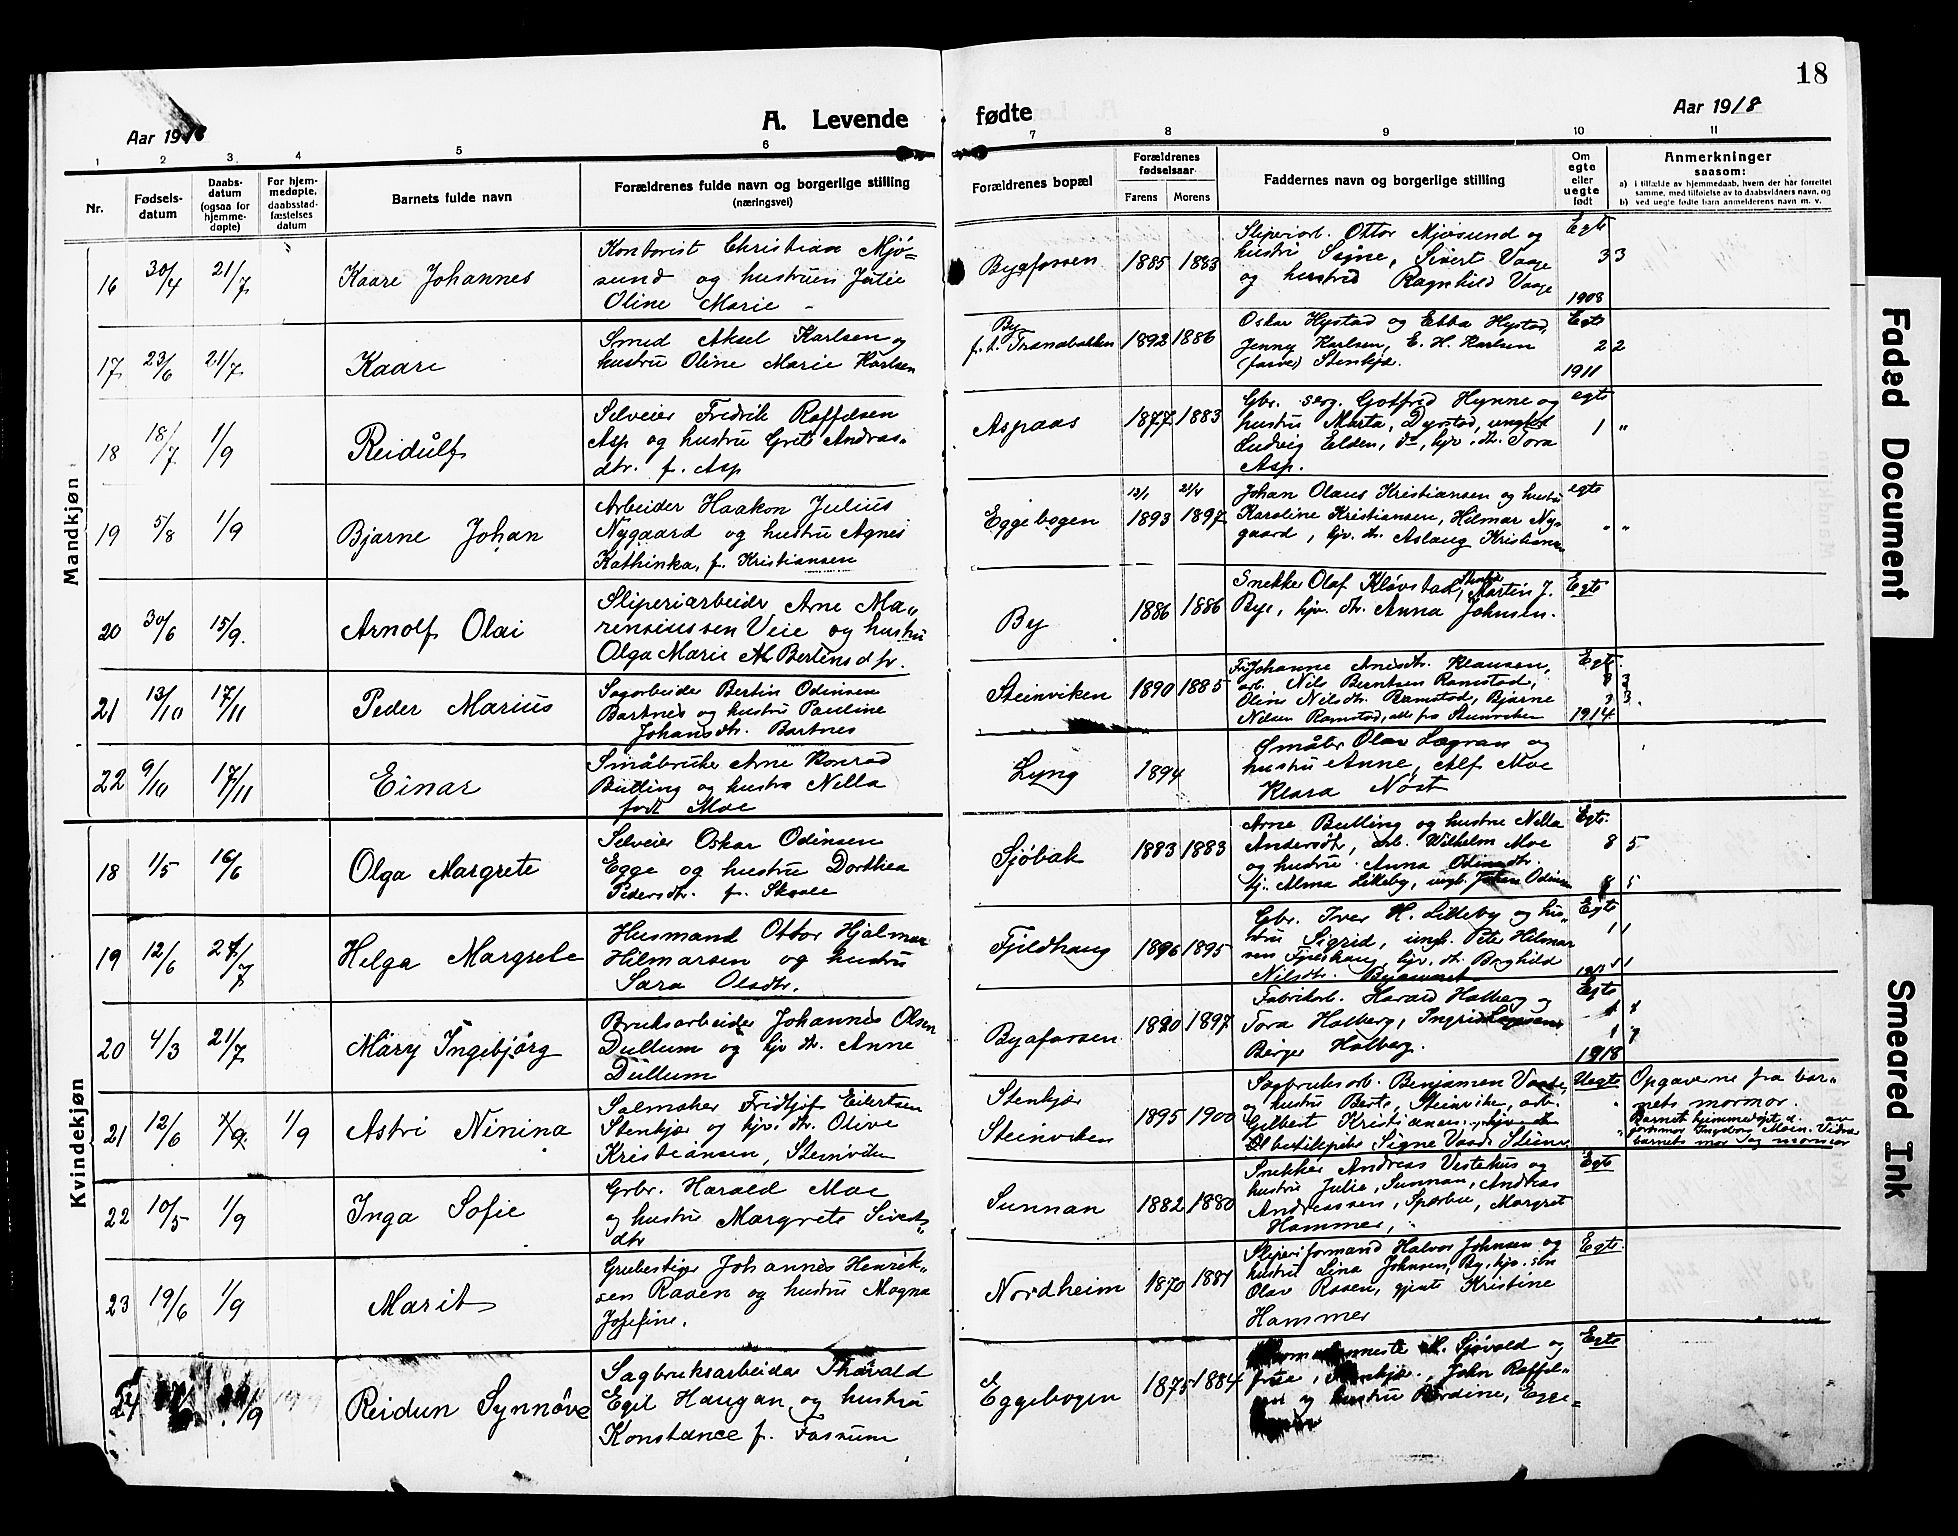 18
Aar 1918
A. Levende
fødte
Aar 1918
1 2 3. 4 5 6 7 8 9 10 11
Nr.
Fødsels-
datum
Daabs-
datum
(ogsaa for
hjemme-
døpte)
For hjem-
medøpte,
daabsstad-
fæstelses
datum
Barnets fulde navn
Forældrenes fulde navn og borgerlige stilling
(næringsvei)
Forældrenes bopæl
Forældrenes
fødselsaar
Farens Morens
Faddernes navn og borgerlige stilling
Om
egte
eller
uegte
født
Anmerkninger
saasom:
a) i tilfælde av hjemmedaab, hvem der har forrettet
samme, med tilføielse av to daabsvidners navn, og
b) ved uegte fødte barn anmelderens navn m. v.
Mandkjøn
16 30/4 21/7 Kaare Johannes
Kontorist Christian Mjö-
sund og hustru Julie
Oline Marie
Byafossen 1885 1883
Sliperiarb. Ottar Mjösund og
hustru Signe, Sivert Vaage
og hustru Ragnhild Vaage
Egte
3 3
1908
17 23/6 21/7 Kaare
Smed Aksel Karlsen og
hustru Oline Marie Karlsen
By
f. t. Tranabakken 1892 1886
Oskar Hystad og Ebba Hystad,
Jenny Karlsen, E. H. Karlsen
Stenkjær.
Egte
2 2
1911
18 18/7 1/9 Reidulf
Selveier Fredrik Raffelsen
Asp og hustru Grete Andreas-
dtr. f. Asp
Aspaas 1877 1883
Gbr. serg. Gotfred Hynne og
hustru Marta, Dyrstad, ungkar
Ludvig Elden, do, hjv. dt. Tora
Asp.
egte
1 "
19 5/8 1/9 Bjarne Johan
Arbeider Haakon Julius
Nygaard og hustru Agnes
Kathinka, f. Kristiansen
Eggebogen 12/1 1893 21/4 1897
Johan Olaus Kristiansen og hustru
Karoline Kristiansen, Hilmar Ny-
gaard, hjv. dt. Aslaug Kristiansen
egte
" "
20 30/6 15/9. Arnolf Olai
Sliperiarbeider Arne Ma-
rensiussen Veie og hustru
Olga Marie M. Bertinsdtr.
By 1886 1886
Snekker Olaf Kløvstad, Martin J.
Bye, hjv. dt. Anna Johnsen.
Egte
21 13/10 17/11 Peder Marius
Sagarbeider Bertin Odinsen
Bartnes og hustru Pauline
Johansdtr. Bartnes
Steinviken 1890 1885
Johanne Arnesdtr. Klausen,
arb. Nils Berntsen Ramstad,
Oline Nilsdtr. Ramstad, Bjarne
Nilsen Ramstad, alle fra Steinviken
Egte.
3 3
1914
22 9/10 17/11 Einar
Småbruker Arne Konrad
Bulling og hustru Nella
født Moe
Lyng 1894
Småbr. Olav Lægran og
hustru Anne, Alf Moe
Klara Nøst
Kvindekjøn
18 1/5 16/6 Olga Margrete
Selveier Oskar Odinsen
Egge og hustru Dorthea
Pedersdtr. f. Skaale
Sjöbak 1883 1883
Arne Bulling og hustru Nella
Andersdtr, arb. Wilhelm Moe
og hustru Anna Odinsdtr.
hj. Alma Lilleby, ungk. Johan Odinsen
Egte.
8 5
8 5
19 12/6 21/7 Helga Margrete
Husmand Ottar Hjalmar
Hilmarsen og hustru
Sara Olsdtr.
Fjeldhaug 1896 1895
Gbr. Iver H. Lilleby og hu-
stru Sigrid, ungk. Peter Hilmar-
sen Fjeshaug, hjv. dt. Borghild
Nilsdtr. Byavaret
Egte
1 1
1 1
20 4/3 21/7 Mary Ingebjørg
Bruksarbeider Johannes Olsen
Dullum og hjv dt. Anne
Dullum
Byafossen 1890 1897
Fabrikarb. Harald Halberg og
Tora Halberg, Ingrid
Birger Halberg.
Egte
1
1
1918
21 12/6 1/9. 1/9 Astri Ninina
Salmaker Fridtjof Eilertsen
Stenkjær og hjv. dt. Olive
Kristiansen, Steinviken
Stenkjær
Steinviken 1895 1900
Sagbruksarb. Benjamen Vaade,
og hustru Berte, Steinvike, arb.
Gilbert Kristiansen,
Signe Vaade Steinv.
Uegte
Opgaverne fra bar-
nets mormor.
Barnet hjemmedøpt av
Barnets mor og mormor
22 10/5 1/9 Inga Sofie
Grbr. Harald Moe
og hustru Margrete Siverts-
dtr
Sunnan 1882 1880
Snekker Andreas Vestehus og
hustru Julie, Sunnan, Andreas
Andreassen, Sparbu, Margret
Hammer,
Egte
23 19/6 1/9 Marit
Grubestiger Johannes Henrik-
sen Raaen og hustru Magna
Josefine.
Nordheim 1870 1881
Sliperiformand Halvor Johnsen og
hustru Lina Johnsen, By, hjv. søn
Olav Raaen, gjente Kristine
Hammer
Egte.
24 Reidun Synnöve
Sagbruksarbeider Thorvald
Egil Haugan og hustru
Konstance f. Fossum
Eggebogen 1875 1884
Sjövold og
frue, John Raffel-
sen og hustru Nordine, Egge-
Egte
Faded Document
Smeared Ink